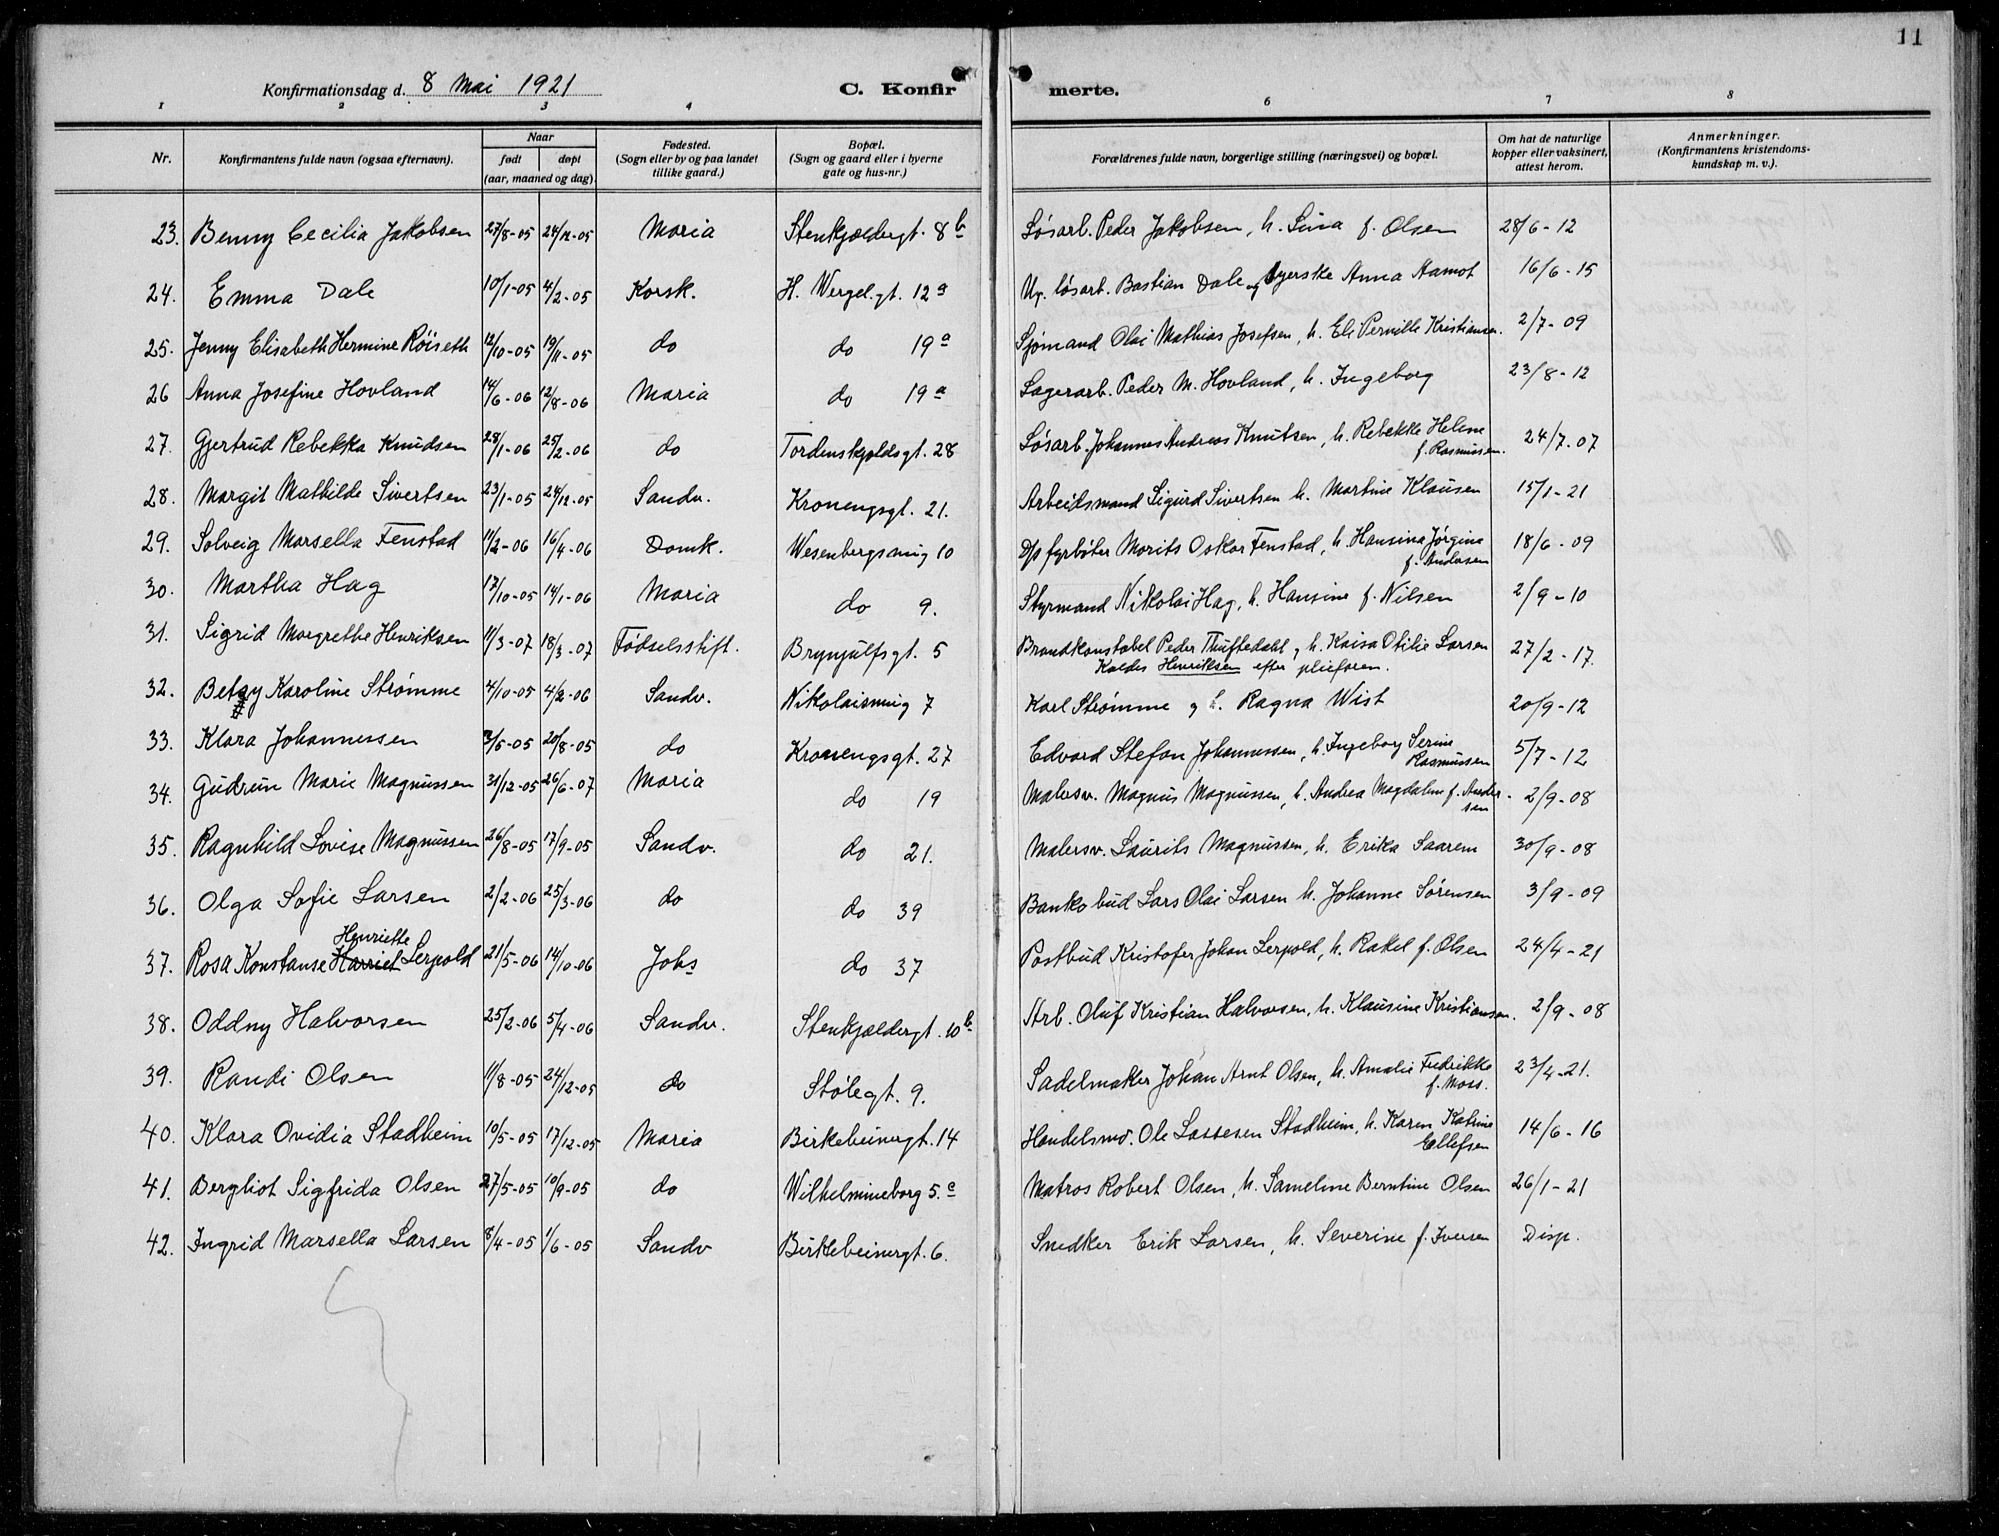 11
Konfirmationsdag d. 8 Mai 1921 C. Konfir merte.
1 2 3 4 6 7 8
Nr. Konfirmantens fulde navn (ogsaa efternavn). Naar født døpt (aar, maaned og dag). Fødested. (Sogn eller by og paa landet tillike gaard.) Bopæl. (Sogn og gaard eller i byerne gate og hus-nr.) Forældrenes fulde navn, borgerlige stilling (næringsvei) og bopæl. Om hat de naturlige kopper eller vaksinert, attest herom. Anmerkninger. (Konfirmantens kristendoms-kundskap m. v.).
23. Benny Cecilia Jakobsen 27/8-05 24/11-05 Maria Stenkjældergt. 8b Løsarb. Peder Jakobsen, h. Lina f. Olsen 28/6-12
24. Emma Dale 10/1-05 4/2-05 Korsk. H. Wergel.gt. 12a Ug. løsarb. Bastian Dale og syerske Anna Hamot 16/6-15
25. Jenny Elisabeth Hermine Røiseth 12/10-05 19/11-05 do do 19a Sjømand Olai Mathias Josefsen, h. Eli Pernille Kristiansen. 2/7-09
26 Anna Josefine Hovland 14/6-06 12/8-06 Maria do 19a Lagerarb. Peder M. Hovland, h. Ingeborg 23/8-12
27. Gjertrud Rebekka Knudsen 28/1-06 25/2-06 do Tordenskjoldsgt. 28 Løsarb. Johannes Andreas Knutsen, h. Rebekke Helene f. Rasmussen. 24/7-07
28. Margit Mathilde Sivertsen 23/1-05 24/12-05 Sandv. Kronengsgt. 21. Arbeidsmand Sigurd Sivertsen h. Martine Klausen 15/1-21
29. Solveig Marsella Fenstad 11/2-06 16/4-06 Domk. Wesenbergsmug 10 D/s fyrbøter Morits Oskar Fenstad, h. Hansina Jørgine f. Andersen 18/6-09
30. Martha Hag 17/10-05 14/1-06 Maria do 9. Styrmand Nikolai Hag, h. Hansine f. Nilsen 2/9-10
31. Sigrid Margrethe Henriksen 11/3-07 18/3-07 Fødselsstift. Brynjulfsgt. 5 Brandkonstabel Peder Thuftedahl, h. Kaisa Otilie Larsen 27/2-17.
Kaldes Henriksen efter pleiefaren.
32. Betsy Karoline Strømme 4/10-05 4/2-06 Sandv. Nikolaismug 7 Karl Strømme g h. Ragna Wist 20/9-12
33. Klara Johannessen 3/5-05 20/8-05 do Kronengsgt. 27 Edvard Stefan Johannessen, h. Ingeborg Serine Rasmussen 5/7-12
34. Gudrun Marie Magnussen 31/12-05 26/6-07 Maria do 19 Malersv. Magnus Magnussen, h. Andrea Magdalene f. Andersen 2/9-08
35. Ragnhild Lovise Magnussen 26/8-05 17/9-05 Sandv. do 21. Malersv. Laurits Magnussen, h. Erika Saarem 30/9-08
36. Olga Sofie Larsen 2/2-06 25/3-06 do do 39 Bankobud Lars Olai Larsen h. Johanne Sørensen 3/9-09
37. Rosa Konstanse Harriet Henriette Lerpold 21/5-06 14/10-06 Johs do 37 Postbud Kristofer Johan Lerpold, h. Rakel f. Olsen 24/4-21
38. Oddny Halvorsen 25/2-06 5/4-06 Sandv. Stenkjældergt. 10b Strb. Oluf Kristian Halvorsen, h. Klausine Kristiansen. 2/9-08
39. Randi Olsen 11/8-05 24/12-05 do Stølegt. 9. Sadelmaker Johan Arnt Olsen, h. Amalie Fredrikke f. Moss. 23/4-21.
40. Klara Ovidia Stadheim 10/5-05 17/12-05 Maria Birkebeinergt. 14 Handelsmd. Ole Lassesen Stadheim, h. Karen Katrine Ellefsen 14/6-16
41. Bergliot Sigfrida Olsen 27/5-05 10/9-05 do Wilhelmineborg 5.c Matros Robert Olsen, h. Sameline Berntine Olsen 26/1-21
42. Ingrid Marsella Larsen 8/4-05 1/6-05 Sandv Birkebeinergt. 6. Snedker Erik Larsen, h. Severine f. Iversen Disp.